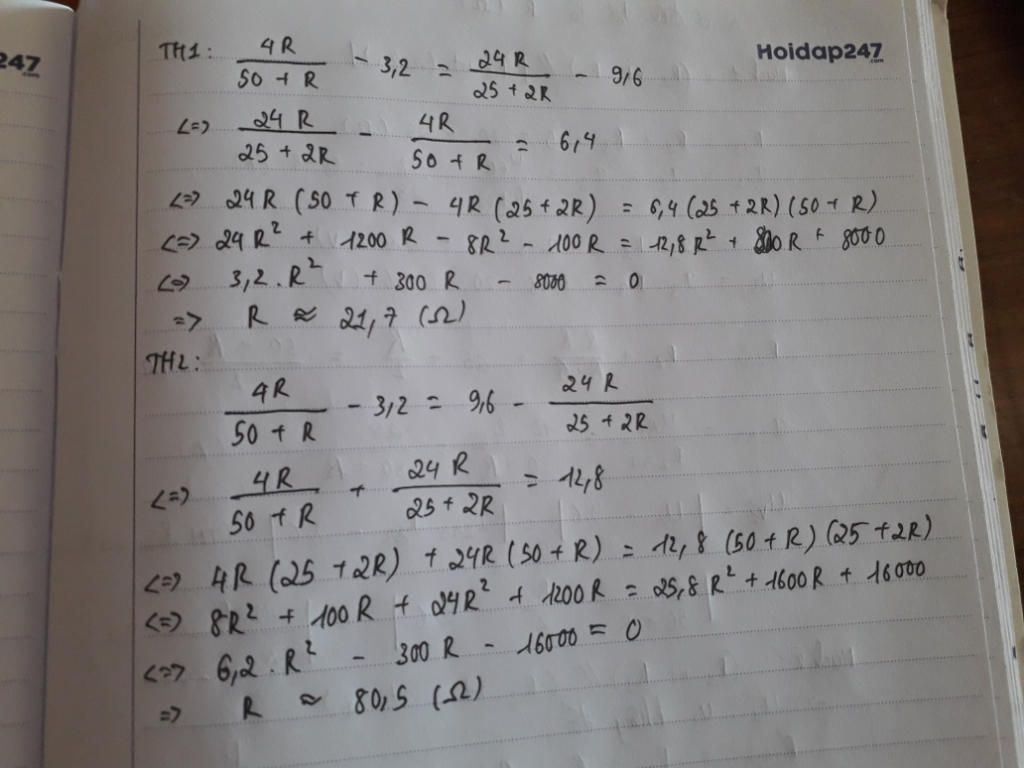 247
.com
Hoidap247
.com
TH1: 4R/(50 + R) - 3,2 = 24R/(25 + 2R) - 9,6
<=> 24R/(25 + 2R) - 4R/(50 + R) = 6,4
<=> 24R (50 + R) - 4R (25 + 2R) = 6,4 (25 + 2R) (50 + R)
<=> 24R² + 1200R - 8R² - 100R = 12,8R² + 800R + 8000
<=> 3,2.R² + 300R - 8000 = 0
=> R ≈ 21,7 (Ω)
TH2:
4R/(50 + R) - 3,2 = 9,6 - 24R/(25 + 2R)
<=> 4R/(50 + R) + 24R/(25 + 2R) = 12,8
<=> 4R (25 + 2R) + 24R (50 + R) = 12,8 (50 + R) (25 + 2R)
<=> 8R² + 100R + 24R² + 1200R = 25,8R² + 1600R + 16000
<=> 6,2.R² - 300R - 16000 = 0
=> R ≈ 80,5 (Ω)